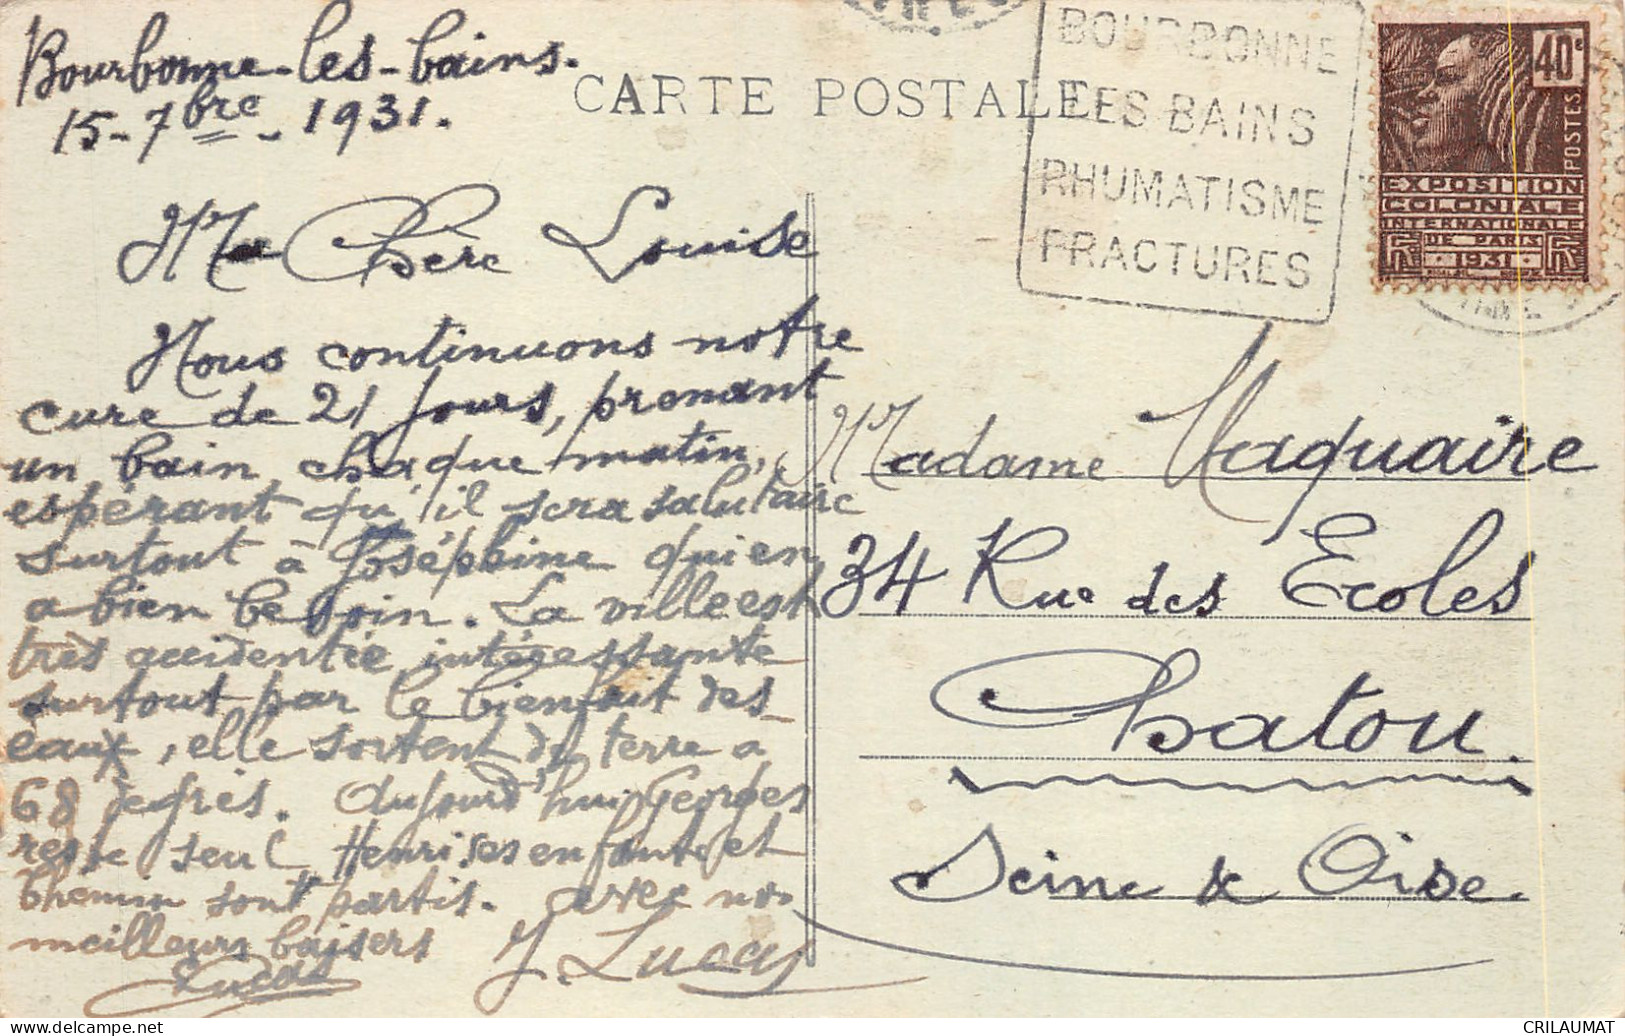 Bourbonne-les-bains.
15-7bre-1931.
CARTE POSTALE
BOURBONNE
LES BAINS
RHUMATISME
FRACTURES
40c
POSTES
EXPOSITION
COLONIALE
INTERNATIONALE
DE PARIS
1931
Ma Chère Louise
Nous continuons notre
cure de 21 jours, prenant
un bain chaque matin,
espérant qu'il sera salutaire
surtout à Joséphine qui en
a bien besoin. La ville est
très accidentée intéressante
surtout par le bienfait des
eaux, elle sortent de terre a
68 degrés. Aujourd'hui Georges
reste seul Henri ses enfants et
sont partis. avec nos
meilleurs baisers
J. Lucas
Lucas
Madame Vaquaire
34 Rue des Ecoles
Chatou.
Seine & Oise.
CRILAUMAT